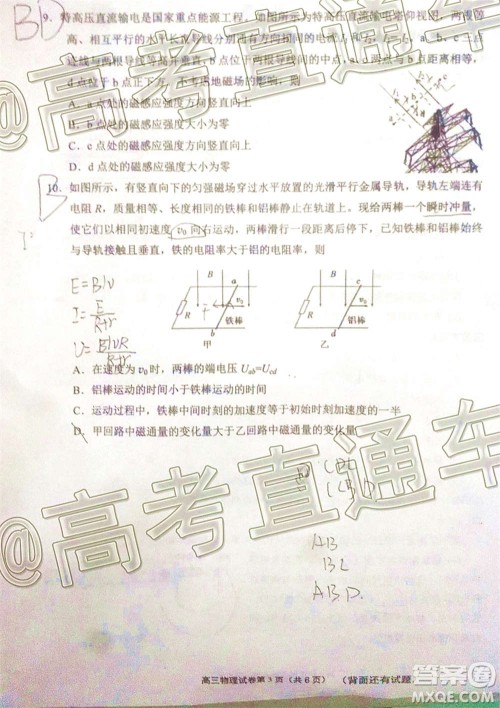 BD
9. 特高压直流输电是国家重点能源工程。如图所示为特高压直流输电塔仰视图，两根等
高、相互平行的水平长直导线分别通有方向相同的电流
连线与两根导线等高并垂直，b点位于两根导线间的中点，a、d两点与b点距离相等，
d点位于b点正下方，不考虑地磁场的影响，则
A．a点处的磁感应强度方向竖直向上
B．b点处的磁感应强度大小为零
C．c点处的磁感应强度方向竖直向上
D．d点处的磁感应强度大小为零
B
10．如图所示，有竖直向下的匀强磁场穿过水平放置的光滑平行金属导轨，导轨左端连有
电阻 R，质量相等、长度相同的铁棒和铝棒静止在轨道上。现给两棒一个瞬时冲量，
使它们以相同初速度 v₀ 向右运动，两棒滑行一段距离后停下，已知两棒运动中始终
与导轨接触且垂直，铁的电阻率大于铝的电阻率，则
E=Blv
I=E/(R+r)
U=BlvR/(R+r)
B
a
R
F
v₀
铁棒
b
甲
B
c
R
v₀
铝棒
d
乙
A．在速度为 v₀ 时，两棒的端电压 Uab=Ucd
B．铝棒运动的时间小于铁棒运动的时间
C．运动过程中，铁棒中间时刻的加速度等于初始时刻加速度的一半
D．甲回路中磁通量的变化量大于乙回路中磁通量的变化量
AB
ABD
高三物理试卷第 3 页（共 6 页）
（背面还有试题
@高考直通车
@高考直通车
答案圈
MXQE.COM